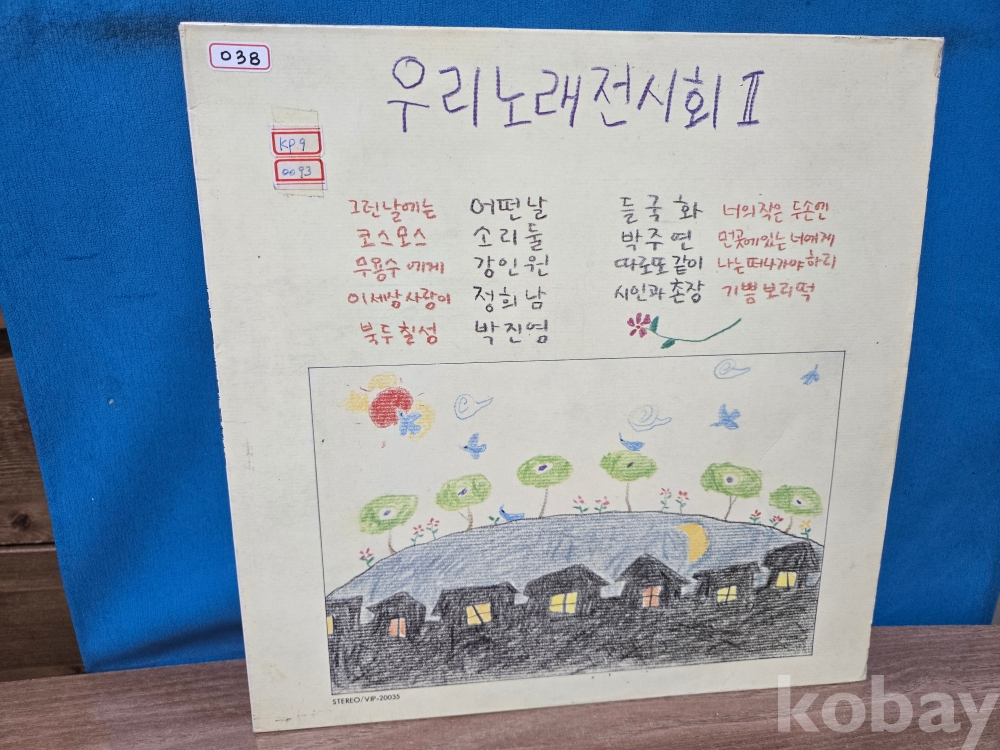 038
우리노래전시회 II
KP9
0093
그런날에는 어떤날
코스모스 소리둘
무용수에게 강인원
이세상사랑이 정희남
북두칠성 박진영
들국화 너의작은두손엔
박주연 먼곳에있는너에게
따로또같이 나는떠나가야하리
시인과촌장 기쁨보리떡
STEREO/VIP-20035
kobay